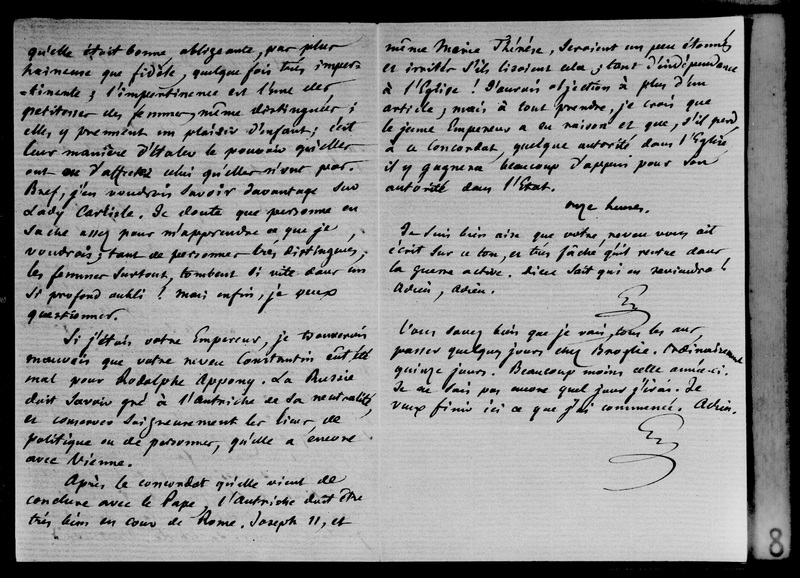 qu'elle était bonne obligeante, pas plus
haineuse que fidèle, quelque fois très imper-
-tinente ; l'impertinence est l'une des
petitesses des femmes, même distinguées ;
elles y prennent un plaisir d'enfant ; c'est
leur manière d'étaler le pouvoir qu'elles
ont ou d'affecter celui qu'elles n'ont pas.
Bref, j'en voudrais savoir davantage sur
Lady Carlisle. Je doute que personne en
sache assez pour m'apprendre ce que je
voudrais ; tant de personnes très distinguées,
les femmes surtout, tombent si vite dans un
si profond oubli ! Mais enfin, je veux
questionner.
Si j'étais votre Empereur, je trouverais
mauvais que votre neveu Constantin eût été
mal pour Rodolphe Appony. La Russie
doit savoir gré à l'Autriche de sa neutralité,
et conserver soigneusement les liens, de
politique ou de personnes, qu'elle a encore
avec Vienne.
Après le concordat qu'elle vient de
conclure avec le Pape, l'Autriche doit être
très bien en cour de Rome. Joseph II, et
même Marie Thérèse, seraient un peu étonnés
et irrités s'ils lisaient cela ; tant d'indépendance
à l'Eglise ! J'aurais objection à plus d'un
article ; mais à tout prendre, je crois que
le jeune Empereur a eu raison et que, s'il perd
à ce concordat, quelque autorité dans l'Eglise,
il y gagnera beaucoup d'appui pour son
autorité dans l'Etat.
onze heures.
Je suis bien aise que votre neveu vous ait
écrit sur ce ton, et très fâché qu'il rentre dans
la guerre active. Dieu sait qui en reviendra !
Adieu, Adieu.
Vous savez bien que je vais, tous les ans,
passer quelques jours chez Broglie. Ordinairement
quinze jours. Beaucoup moins cette année-ci.
Je ne sais pas encore quel jour j'irai. Je
veux finir ici ce que j'ai commencé. Adieu.
8